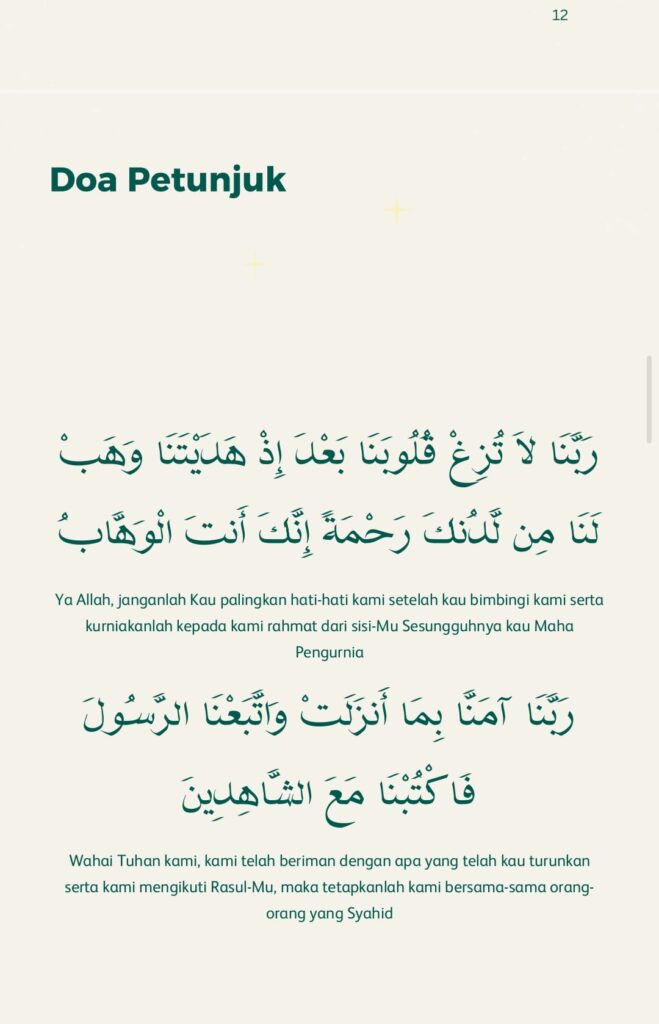 12
Doa Petunjuk
رَبَّنَا لاَ تُزِغْ قُلُوبَنَا بَعْدَ إِذْ هَدَيْتَنَا وَهَبْ
لَنَا مِن لَّدُنكَ رَحْمَةً إِنَّكَ أَنتَ الْوَهَّابُ
Ya Allah, janganlah Kau palingkan hati-hati kami setelah kau bimbingi kami serta
kurniakanlah kepada kami rahmat dari sisi-Mu Sesungguhnya kau Maha
Pengurnia
رَبَّنَا آمَنَّا بِمَا أَنزَلَتْ وَاتَّبَعْنَا الرَّسُولَ
فَاكْتُبْنَا مَعَ الشَّاهِدِينَ
Wahai Tuhan kami, kami telah beriman dengan apa yang telah kau turunkan
serta kami mengikuti Rasul-Mu, maka tetapkanlah kami bersama-sama orang-
orang yang Syahid